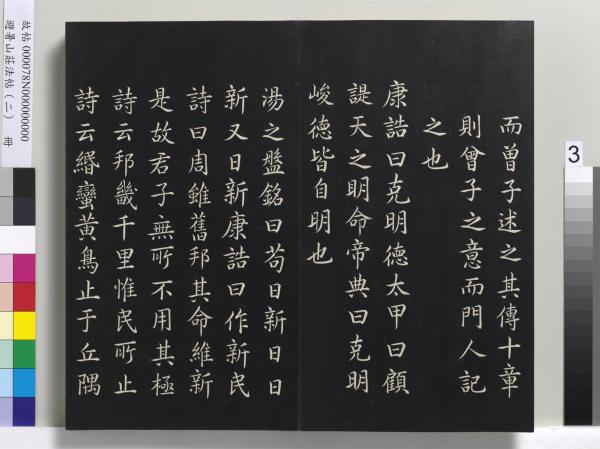 而曾子述之其傳十章
則曾子之意而門人記
之也
康誥曰克明德太甲曰顧
諟天之明命帝典曰克明
峻德皆自明也
湯之盤銘曰苟日新日日
新又日新康誥曰作新民
詩曰周雖舊邦其命維新
是故君子無所不用其極
詩云邦畿千里惟民所止
詩云緡蠻黃鳥止于丘隅
故帖 000078N000000000
避暑山莊法帖(二) 冊
3